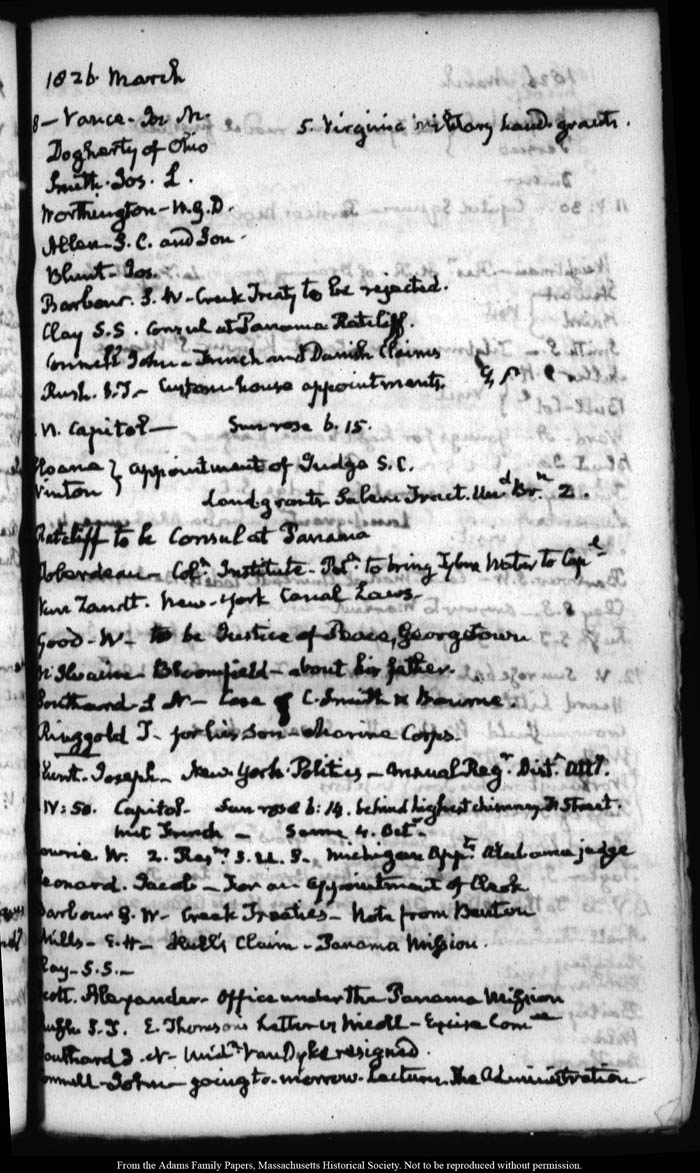 1826. March
8 — Vance. Jos. M.
5. Virginia military land grants.
Dogherty of Ohio
Smith. Jos. L.
Worthington — W. G. D.
Allen — S. C. and Son.
Blunt — Jos.
Barbour. S. W — Creek Treaty to be rejected.
Clay S. S. Consul at Panama Ratcliff.
Connell John — French and Danish Claims
Rush. S. T — Custom house appointments
. Capitol — Sun rose 6. 15.
Sloane } appointment of Judge S. C.
Vinton } Land grants Salem Tract. 2.
Ratcliff to be Consul at Panama
Roberdeau — Colⁿ Institute — to bring Water to Capˡ
Van Zandt. New-York Canal Laws —
Good — W — to be Justice of Peace, Georgetown
Bloomfield — about his father.
Southard S N — Case of C. Smith & Bourne.
Ringgold T — for his Son — Marine Corps.
Blunt. Joseph — New York Politics — Annual Regʳ. Distᵗ Attʸ.
IV: 50. Capitol — Sun rose 6: 14. behind highest chimney F Street.
met French — Same 4. Octʳ
Lowrie. W. 2. Resⁿˢ S. U. S. Michigan appᵗˢ Alabama judge
Leonard. Jacob — For an appointment of Clerk
Barbour S. W — Creek Treaties — Note from Benton
Mills — E. H — Hull's Claim — Panama Mission.
Clay — S. S. —
Scott. Alexander — Office under the Panama Mission
Rush S. T. E. Thomson's Letter
Southard S. N — Midⁿ Van Dyke resigned.
Connell — John — going to-morrow. Lectures. The Administration
From the Adams Family Papers, Massachusetts Historical Society. Not to be reproduced without permission.